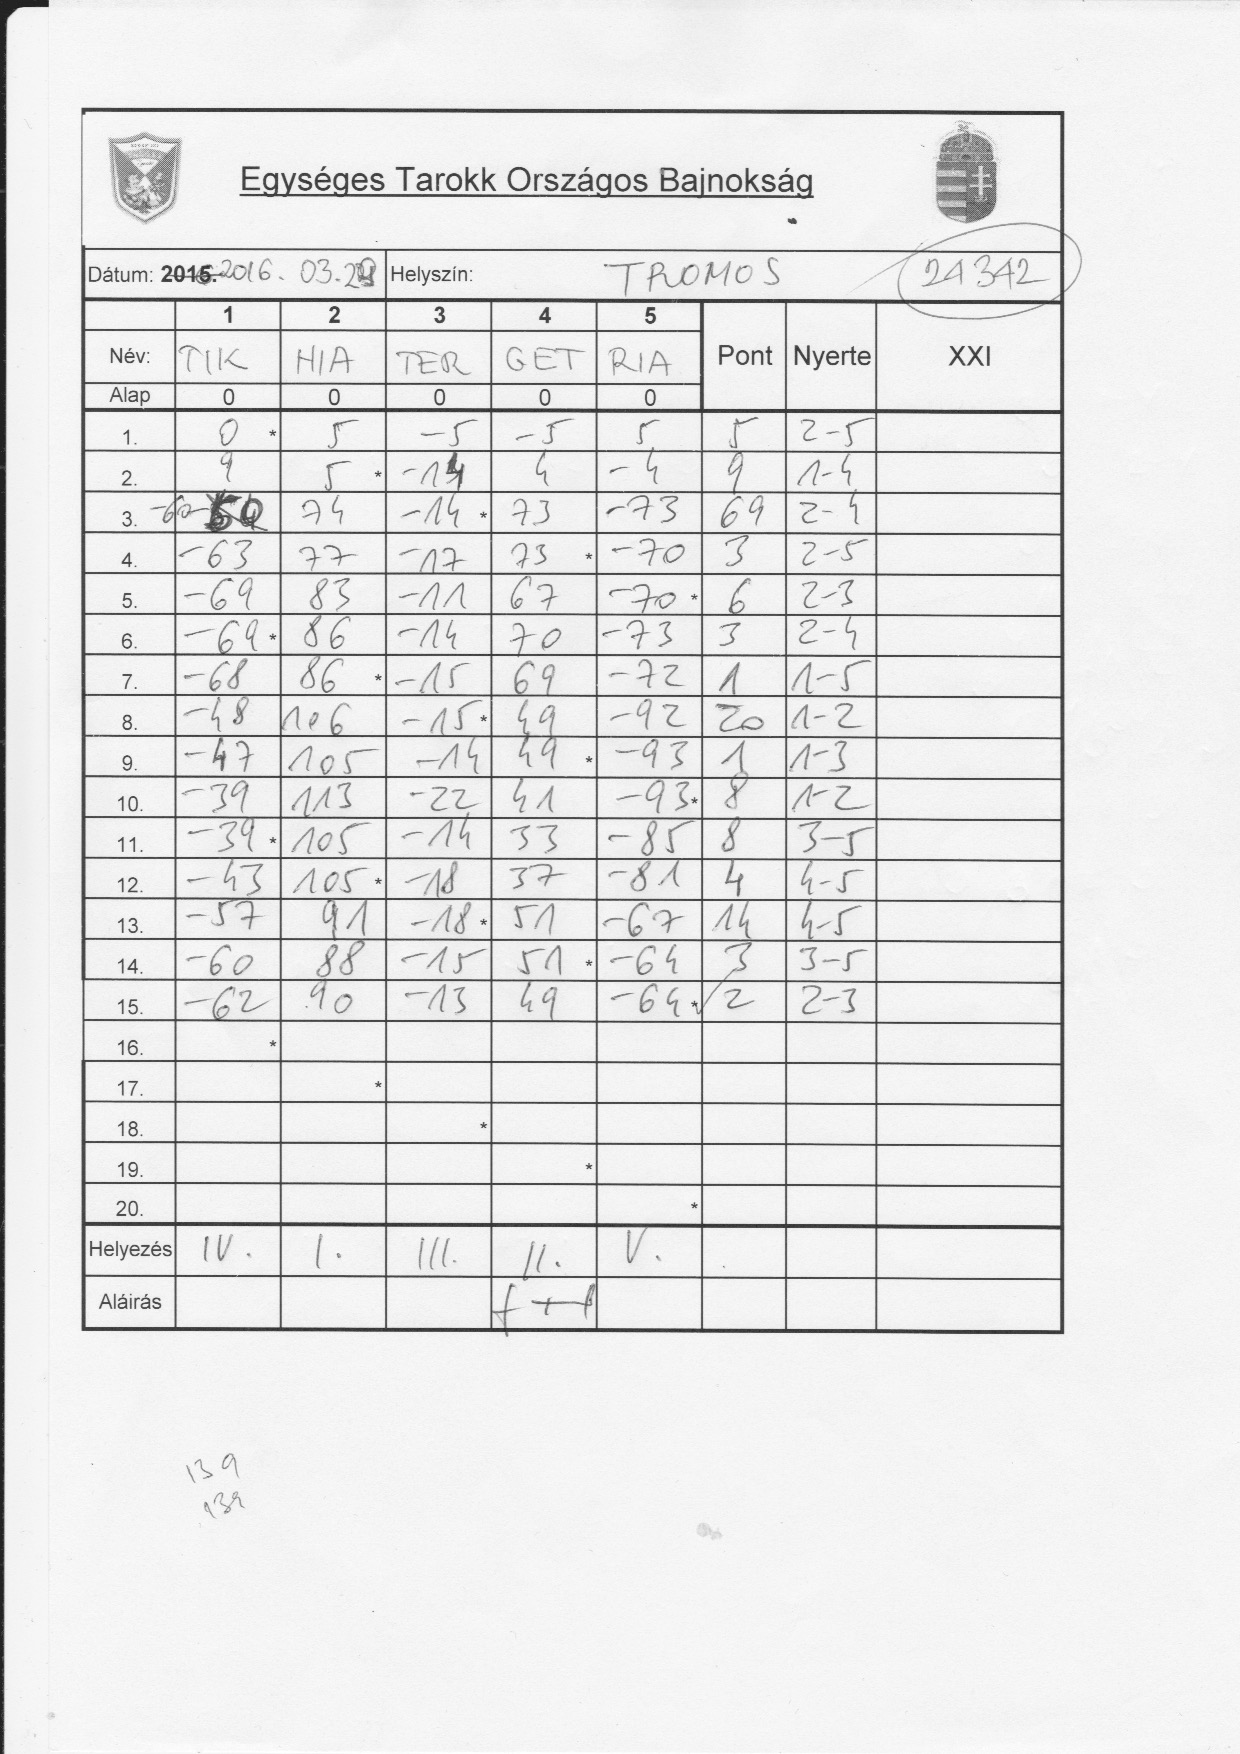 Egységes Tarokk Országos Bajnokság
Dátum: 2015. 2016. 03. Helyszín: TROMOS 24342
1 2 3 4 5
Név: TIK HIA TER GET RIA Pont Nyerte XXI
Alap 0 0 0 0 0
1. 0 * 5 -5 -5 5 5 2-5
2. 9 5 * -14 4 -4 9 1-4
3. -60 74 -14 * 73 -73 69 2-4
4. -63 77 -17 73 * -70 3 2-5
5. -69 83 -11 67 -70 * 6 2-3
6. -69 * 86 -14 70 -73 3 2-4
7. -68 86 * -15 69 -72 1 1-5
8. -48 106 -15 * 49 -92 20 1-2
9. -47 105 -14 49 * -93 1 1-3
10. -39 113 -22 41 -93 * 8 1-2
11. -39 * 105 -14 33 -85 8 3-5
12. -43 105 * -18 37 -81 4 4-5
13. -57 91 -18 * 51 -67 14 4-5
14. -60 88 -15 51 * -64 3 3-5
15. -62 90 -13 49 -64 * 2 2-3
16. *
17. *
18. *
19. *
20. *
Helyezés IV. I. III. II. V.
Aláírás
139
139